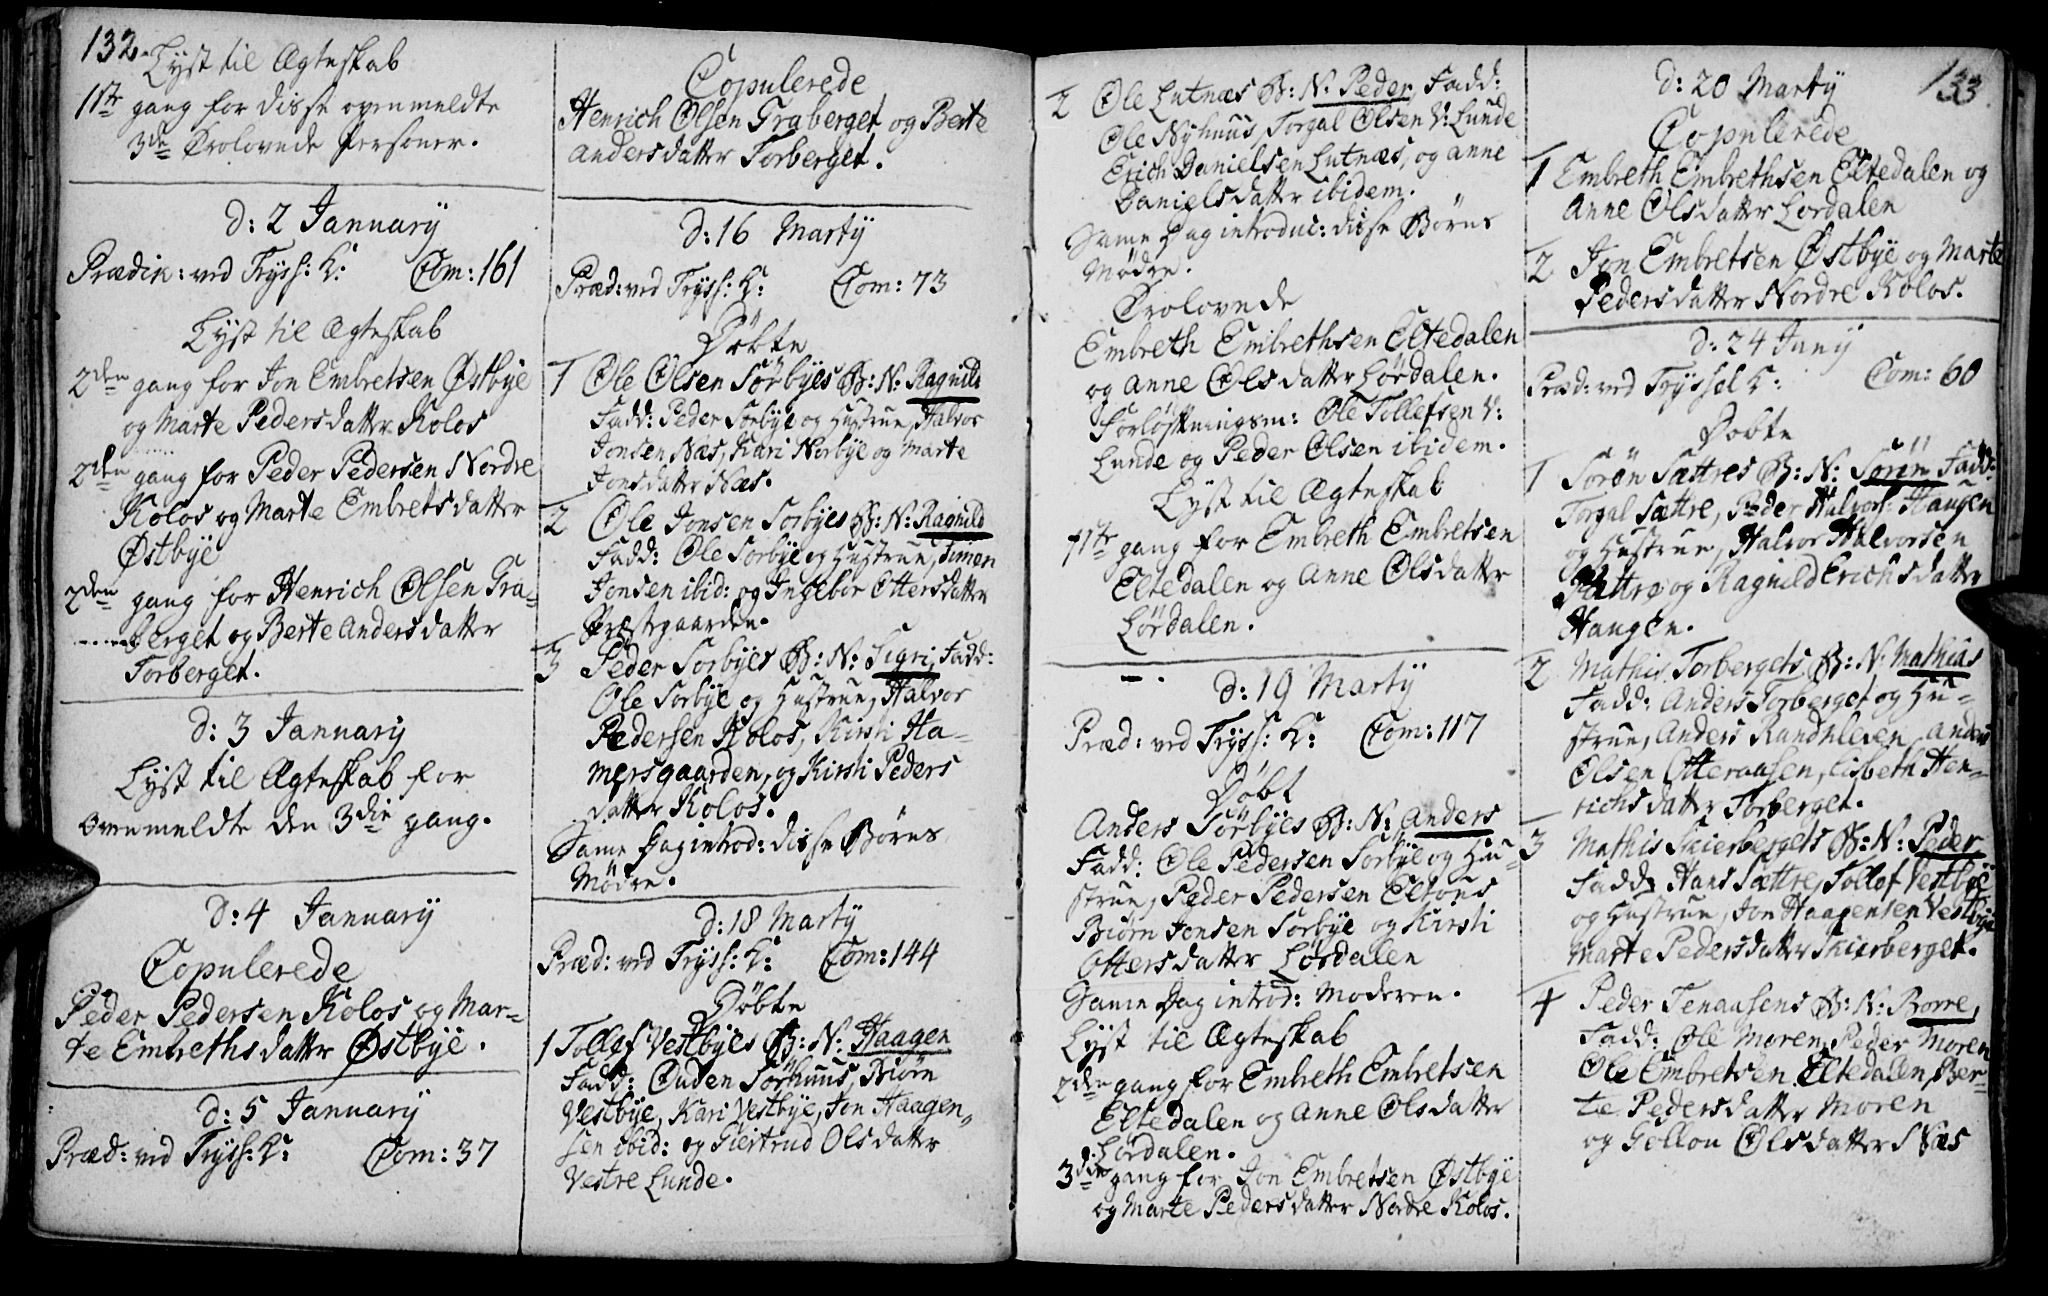 132.
Lyst til Ægteskab
1ste gang for disse ovenmeldte
3de Trolovede Personer.
d: 2 Januarÿ
Prædik: ved Tryss: K: Com: 161
Lyst til Ægteskab
2den gang for Jon Embretsen Østbÿe
og Marte Pedersdatter Kolos
2den gang for Peder Pedersen Nordre
Kolos og Marte Embretsdatter
Østbÿe
2den gang for Henrich Olsen Tra-
berget og Berte Andersdatter
Torberget.
d: 3 Januarÿ
Lyst til Ægteskab for
ovenmeldte den 3die gang.
d: 4 Januarÿ
Copulerede
Peder Pedersen Kolos og Mar-
te Embrethsdatter Østbÿe.
d: 5 Januarÿ
Præd: ved Tryss: K: Com: 37
Copulerede
Henrich Olsen Traberget og Berte
Andersdatter Torberget.
d: 16 Martÿ
Præd: ved Tryss: K: Com: 73
Døbte
1 Ole Olsen Sörbÿes B: N: Ragnild
Fadd: Peder Sorbÿe og Hustrue, Halvor
Jonsen Næs, Kari Norbÿe og Marte
Jonsdatter Næs.
2 Ole Jonsen Sorbÿes B: N: Ragnild
Fadd: Ole Sorbÿe og Hustrue, Simen
Jonsen ibid: og Ingebor Ottersdatter
Præstegaarden.
3 Peder Sorbÿes B: N: Sigri, Fadd:
Ole Sorbÿe og Hustrue, Halvor
Pedersen Kolos, Kirsti Ha-
mersgaarden, og Kirsti Peders
datter Kolos.
Same Dag introd: disse Børns
Mödre.
d: 18 Martÿ
Præd: ved Tryss: K: Com: 144
Döbte
1 Tollef Vestbÿes B: N: Haagen
Fadd: Ouden Sörhuus, Biörn
Vestbÿe, Kari Vestbÿe, Jon Haagen-
sen ibid: og Giertrud Olsdatter
Vestre Lunde.
2 Ole Lutnæs B: N: Peder, Fadd:
Ole Nÿhuus, Torgal Olsen V: Lunde
Erich Danielsen Lutnæs, og Anne
Danielsdatter ibidem.
Same Dag introduc: disse Børns
Mödre.
Trolovede
Embreth Embrethsen Eltedalen
og Anne Olsdatter Lördalen.
Forlöftningsm: Ole Tollefsen V:
Lunde og Peder Olsen ibidem.
Lyst til Ægteskab
1ste gang for Embreth Embretsen
Eltedalen og Anne Olsdatter
Lördalen.
d: 19 Martÿ
Præd: ved Tryss: K: Com: 117
Döbt
Anders Sörbÿes B: N: Anders
Fadd: Ole Pedersen Sorbÿe og Hu-
strue, Peder Pedersen Eltoens
Biörn Jonsen Sorbÿe og Kirsti
Ottersdatter Lördalen
Same Dag introd: Moderen.
Lyst til Ægteskab
2den gang for Embreth Embretsen
Eltedalen og Anne Olsdatter
Lördalen.
3die gang for Jon Embretsen Østbÿe
og Marte Pedersdatter Nordre Kolos.
133.
d: 20 Martÿ
Copulerede
1 Embreth Embrethsen Eltedalen og
Anne Olsdatter Lordalen
2 Jon Embretsen Østbÿe og Marte
Pedersdatter Nordre Kolos.
d: 24 Junÿ
Præd: ved Tryssel K: Com: 60
Dobte
1 Sorön Sættres B: N: Sörin Fadd:
Torgal Sættre, Peder Halvors: Haugen
og Hustrue, Halvor Halvorsen
Sættre og Ragnild Erichsdatter
Haugen.
2 Mathis Torbergets B: N: Mathias
Fadd: Anders Torberget og Hu-
strue, Anders Randhleven, Anders
Olsen Otteraasen, Lisbeth Hen-
richsdatter Torberget.
3 Mathis Skierbergets B: N: Peder
Fadd: Hans Sættre, Tollof Vestbÿe
og Hustrue, Jon Haagensen Vestbÿe
Marte Pedersdatter Skierberget.
4 Peder Tenaasens B: N: Borre,
Fadd: Ole Moren, Peder Moren
Ole Embretsen Eltedalen, Ber-
te Pedersdatter Moren
og Gollou Olsdatter Næs